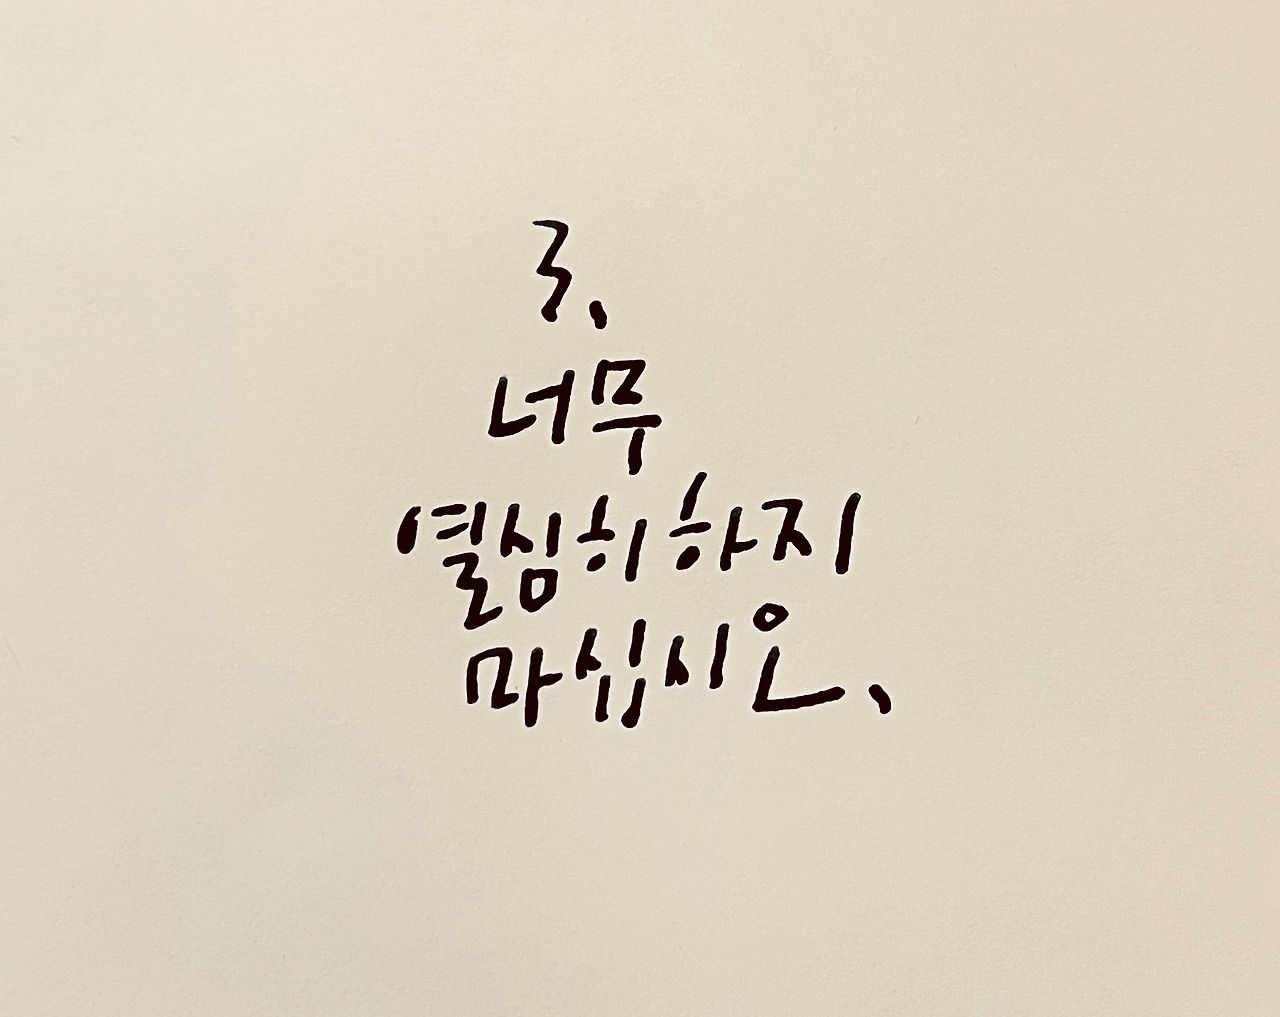 3.
너무
열심히 하지
마십시오.